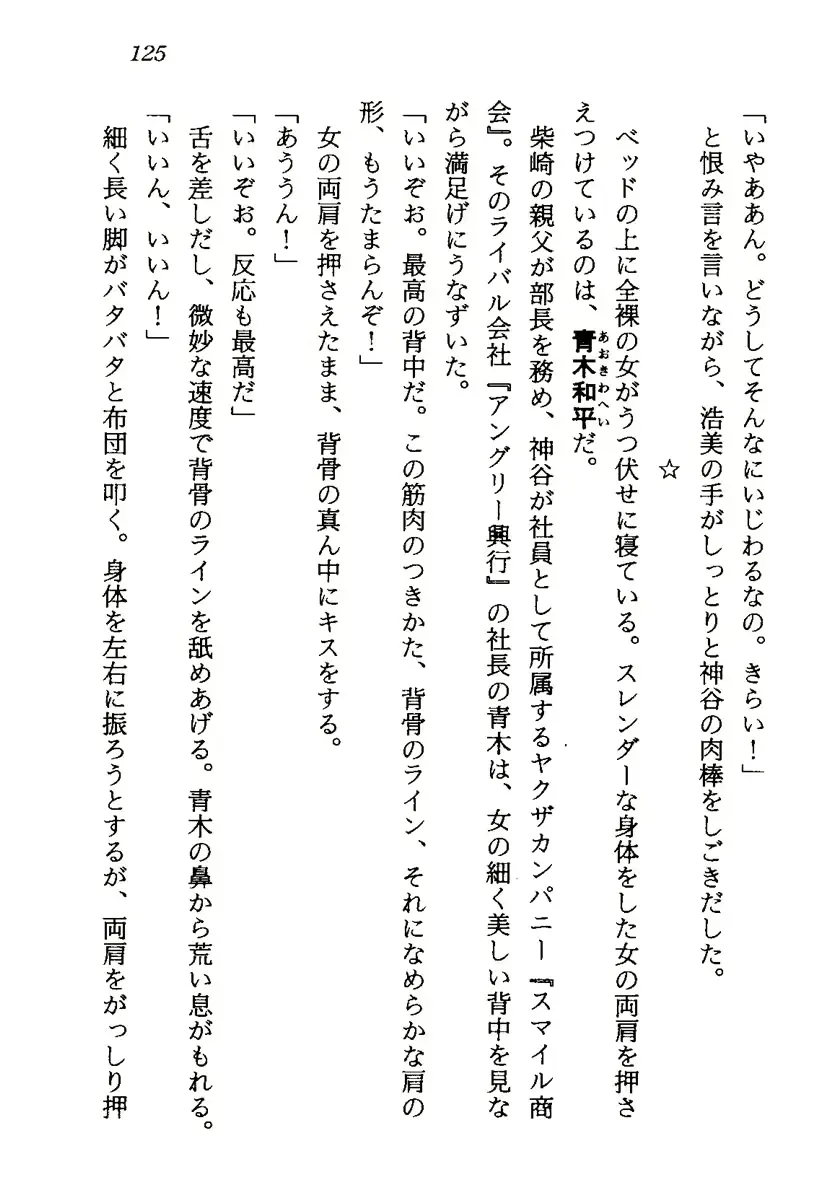 125
「いやああん。どうしてそんなにいじわるなの。きらい！」
と恨み言を言いながら、浩美の手がしっとりと神谷の肉棒をしごきだした。
☆
ベッドの上に全裸の女がうつ伏せに寝ている。スレンダーな身体をした女の両肩を押さ
えつけているのは、青木和平だ。
あおきわへい
柴崎の親父が部長を務め、神谷が社員として所属するヤクザカンパニー『スマイル商
会』。そのライバル会社『アングリー興行』の社長の青木は、女の細く美しい背中を見な
がら満足げにうなずいた。
「いいぞお。最高の背中だ。この筋肉のつきかた、背骨のライン、それになめらかな肩の
形、もうたまらんぞ！」
女の両肩を押さえたまま、背骨の真ん中にキスをする。
「あううん！」
「いいぞお。反応も最高だ」
舌を差しだし、微妙な速度で背骨のラインを舐めあげる。青木の鼻から荒い息がもれる。
「いいん、いいん！」
細く長い脚がバタバタと布団を叩く。身体を左右に振ろうとするが、両肩をがっしり押